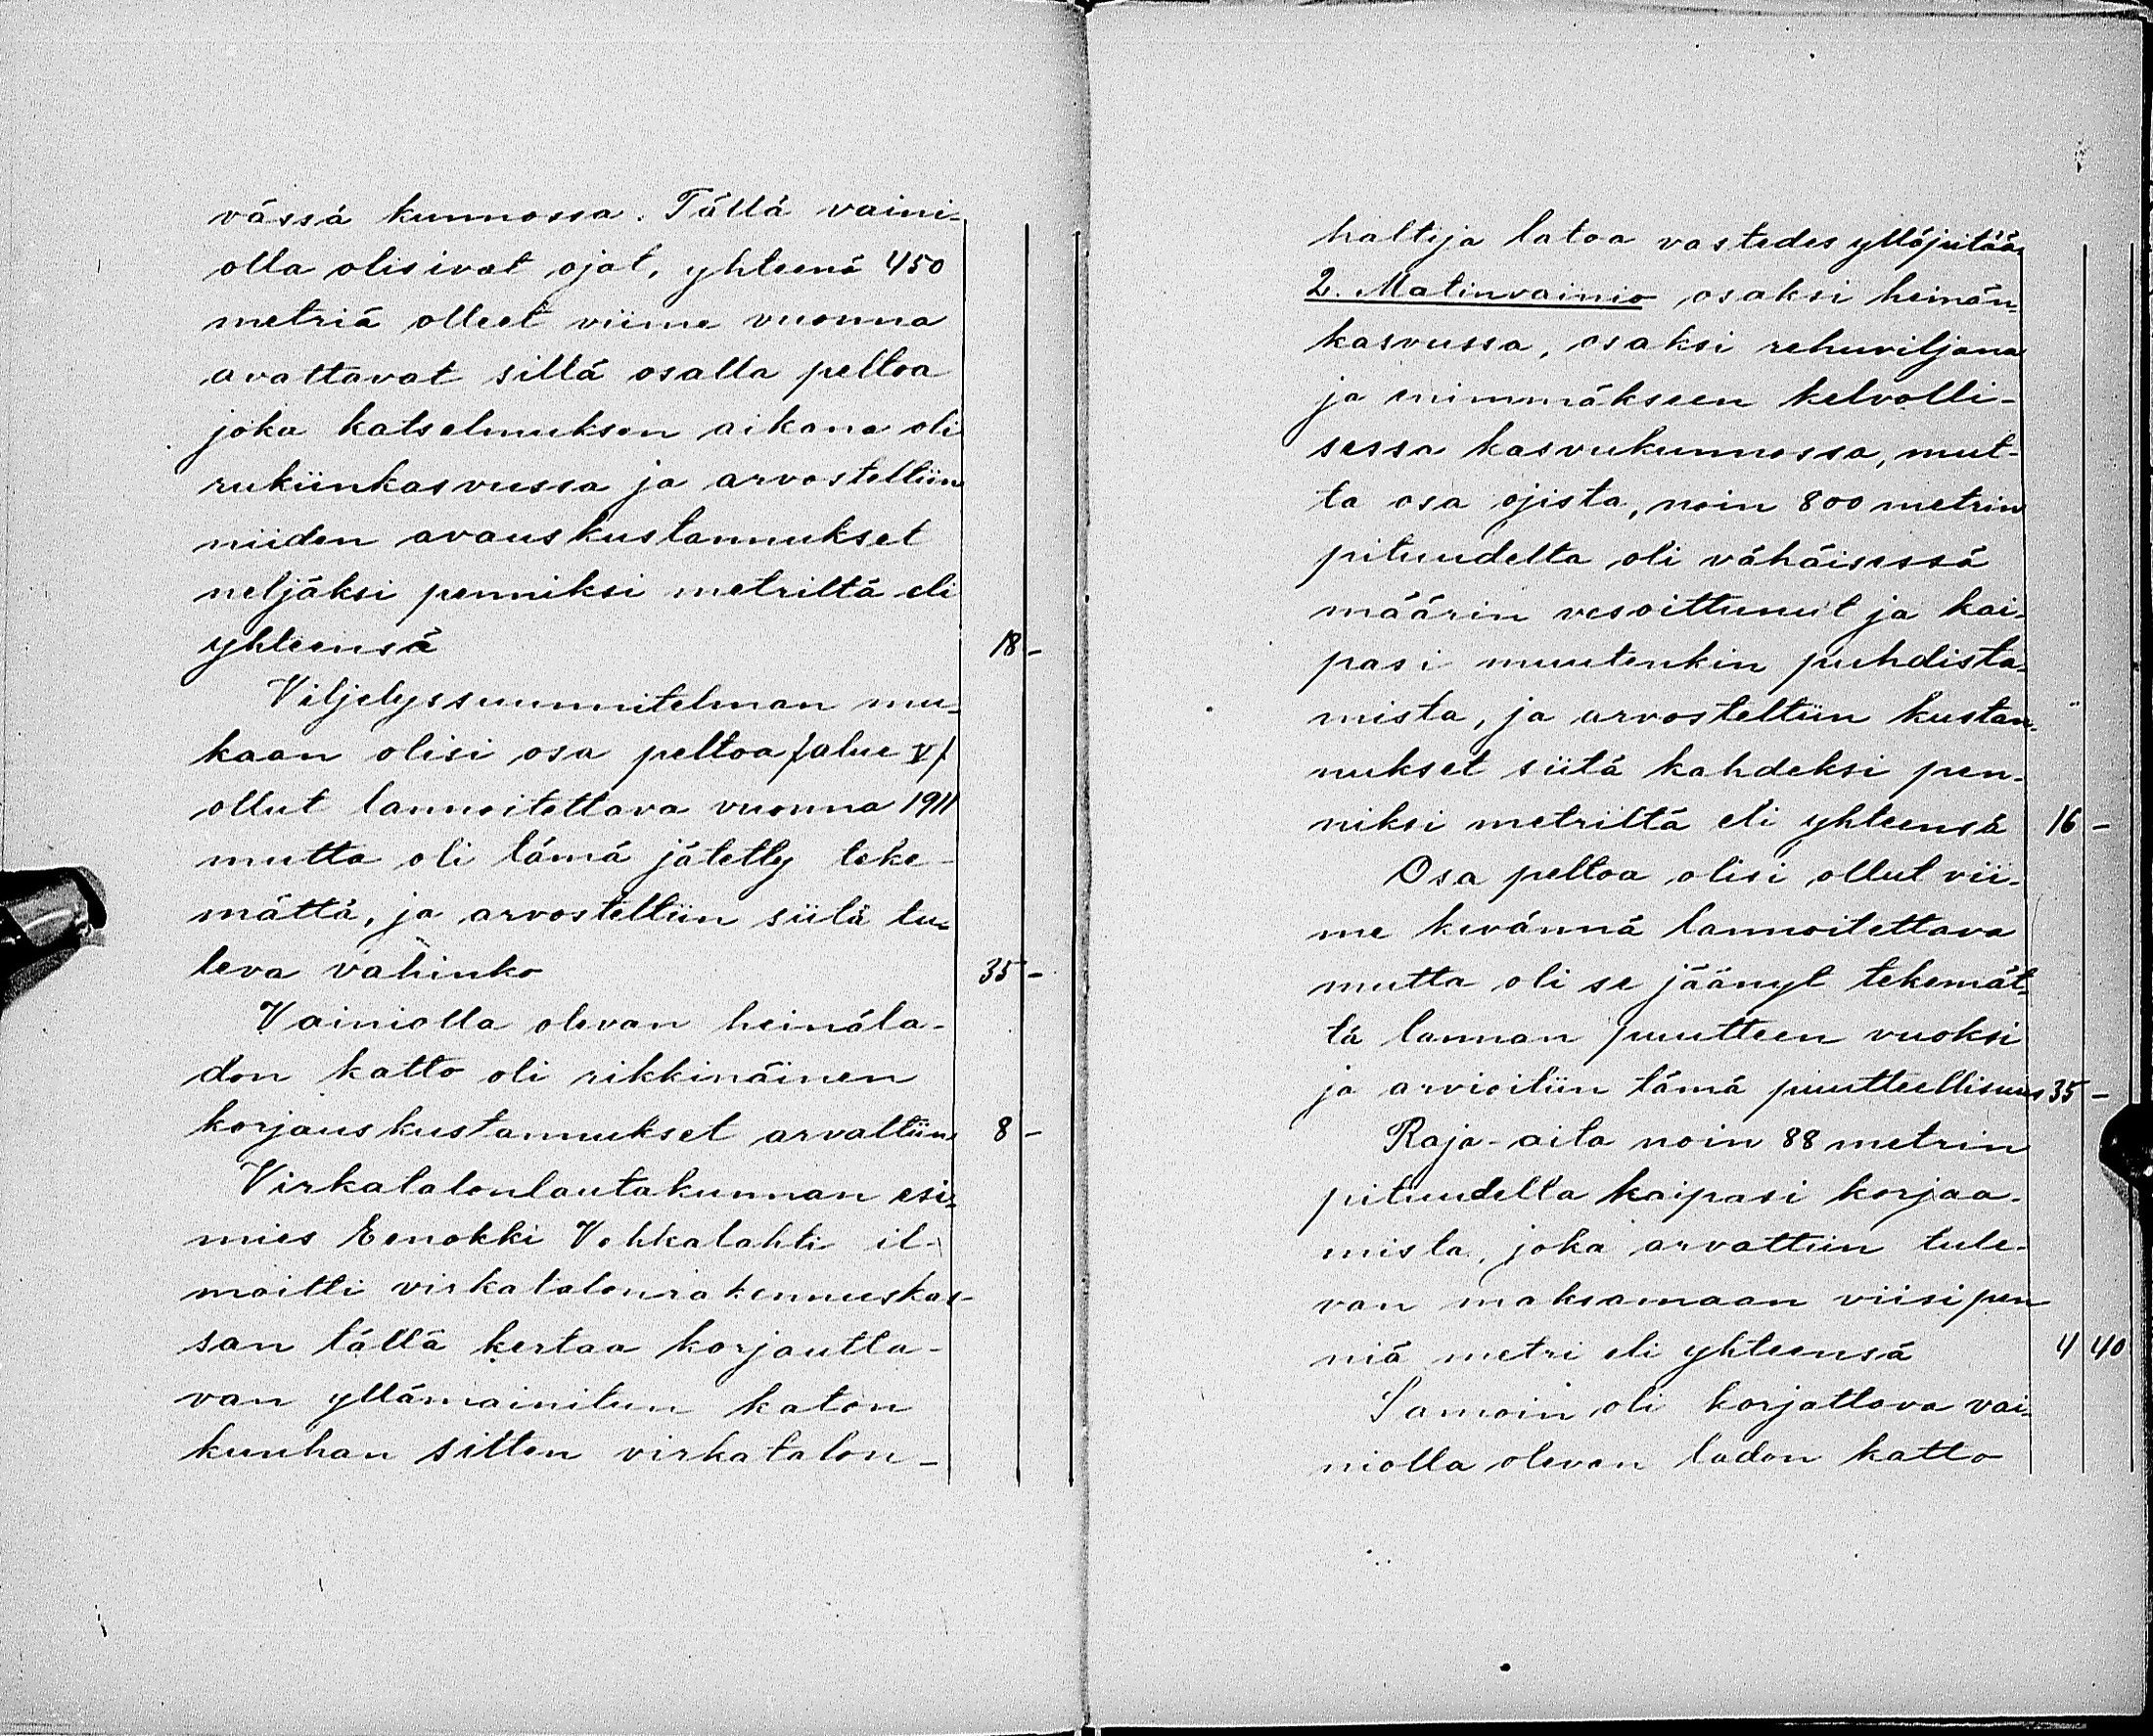 vässä kunnossa. Tällä vaini-
olla olisivat ojat, yhteensä 450
metriä olleet viime vuonna
avattavat sillä osalla peltoa
joka katselmuksen aikana oli
rukiinkasvussa ja arvosteltiin
niiden avauskustannukset
neljäksi penniksi metriltä eli
yhteensä 18 -
Viljelyssuunnitelman mu-
kaan olisi osa peltoa /alue V/
ollut lannoitettava vuonna 1911
mutta oli tämä jätetty teke-
mättä, ja arvosteltiin siitä tu-
leva vahinko 35 -
Vainiolla olevan heinäla-
don katto oli rikkinäinen
korjauskustannukset arvattiin 8 -
Virkatalonlautakunnan esi-
mies Eenokki Vehkalahti il-
moitti virkatalonrakennuskas-
san tällä kertaa korjautta-
van yllämainitun katon
kunhan sitten virkatalon-
haltija latoa vastedes ylläpitää.
2. Matinvainio osaksi heinän-
kasvussa, osaksi rehuviljana
ja enimmäkseen kelvolli-
sessa kasvukunnossa, mut-
ta osa ojista, noin 800 metrin
pituudelta oli vähäisessä
määrin vesoittunut ja kai-
pasi muutenkin puhdista-
mista, ja arvosteltiin kustan-
nukset siitä kahdeksi pen-
niksi metriltä eli yhteensä 16 -
Osa peltoa olisi ollut vii-
me kevännä lannoitettava
mutta oli se jäänyt tekemät-
tä lannan puutteen vuoksi
ja arvioitiin tämä puutteellisuus 35 -
Raja-aita noin 88 metrin
pituudella kaipasi korjaa-
mista, joka arvattiin tule-
van maksamaan viisi pen
niä metri eli yhteensä 4 40
Samoin oli korjattava vai-
niolla olevan ladon katto